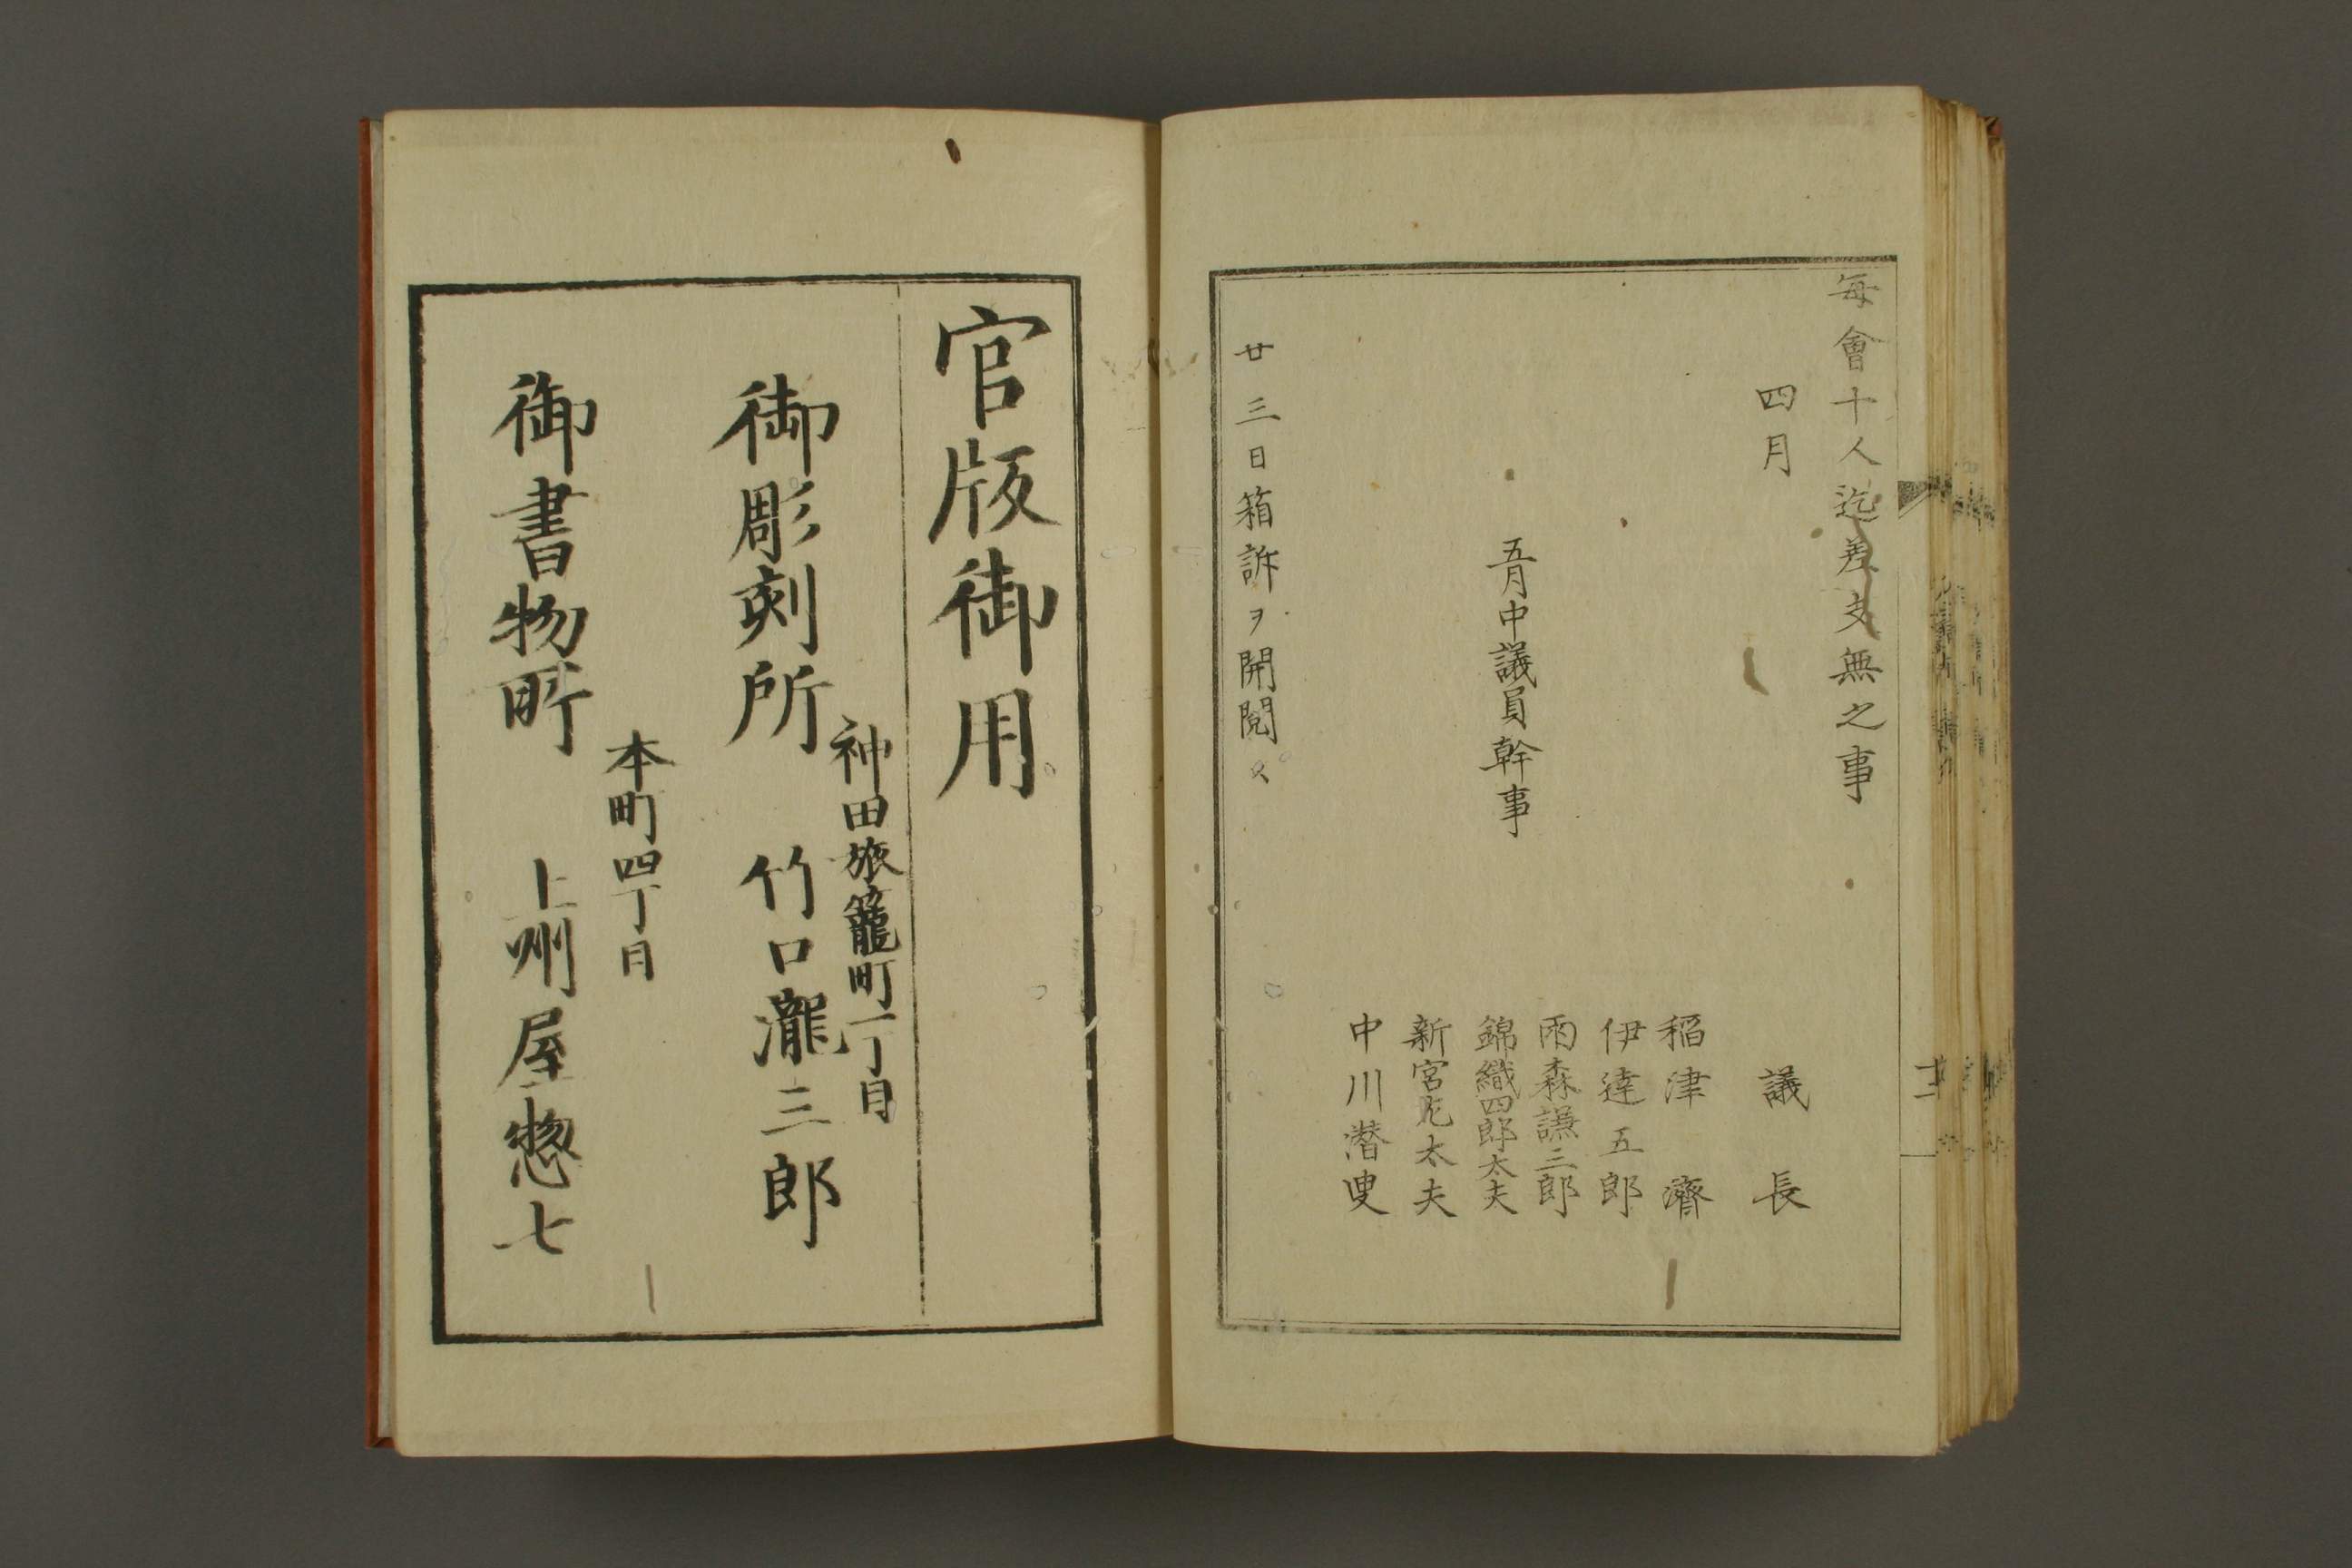 毎會十人迄差支無之事
四月
議長
稲津濟
伊達五郎
雨森謙三郎
錦織四郎太夫
五月中議員幹事
新宮太夫
中川潜叟
廿三日箱訴ヲ開閲ス
官版御用
神田旅籠町一丁目
御彫刻所 竹口瀧三郎
本町四丁目
御書物所 上州屋惣七